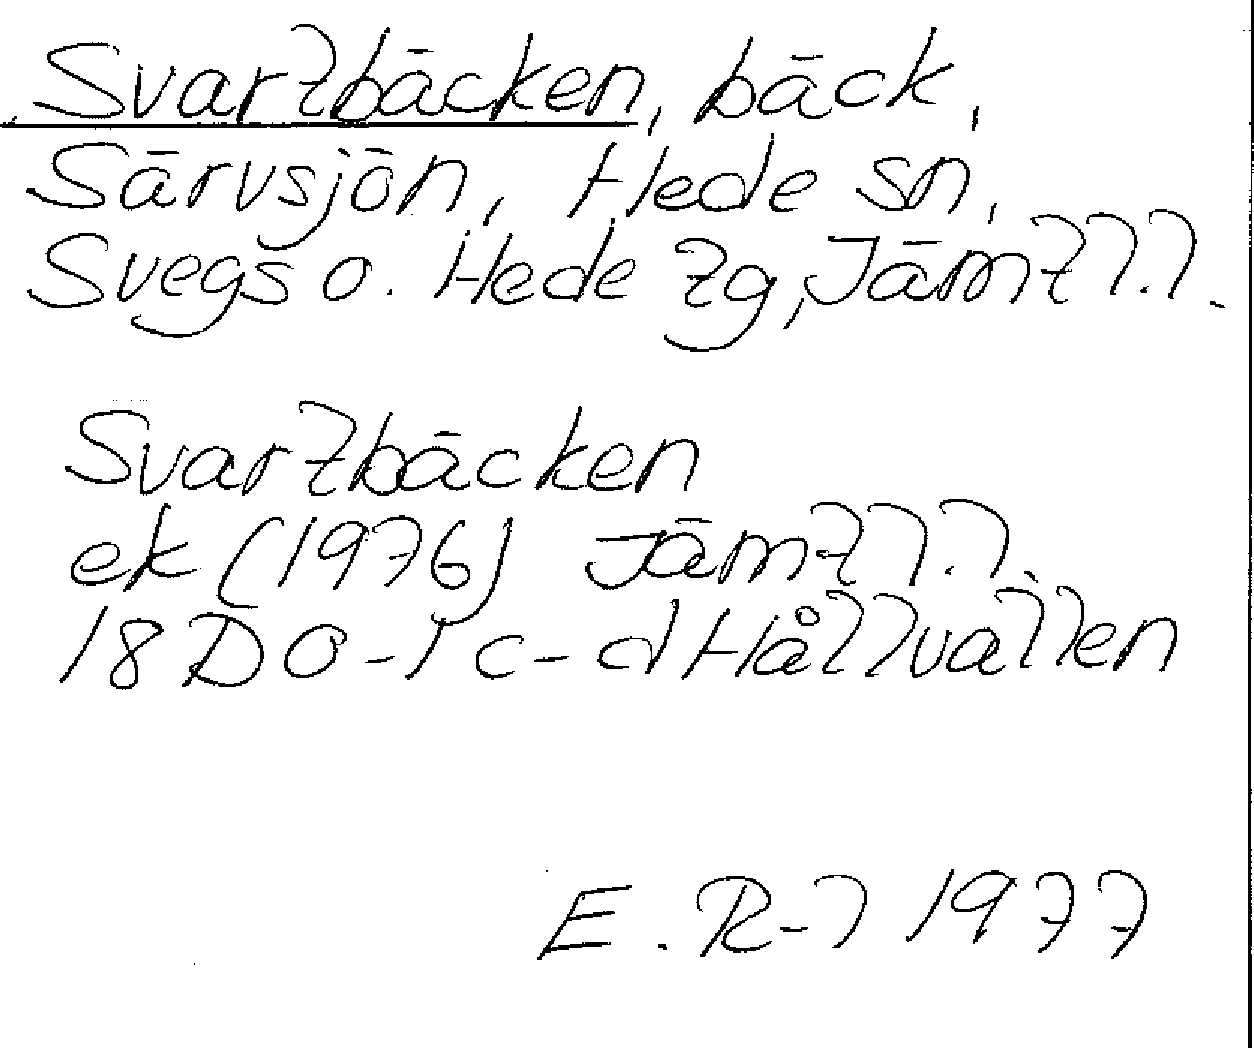 Svartbäcken, bäck,
Särvsjön, Hede sn,
Svegs o. Hede tg, Jämtl.l.
Svartbäcken
ek (1976) Jämtl.l.
18D 0-1 c-d Hållvallen
E. R-l 1977